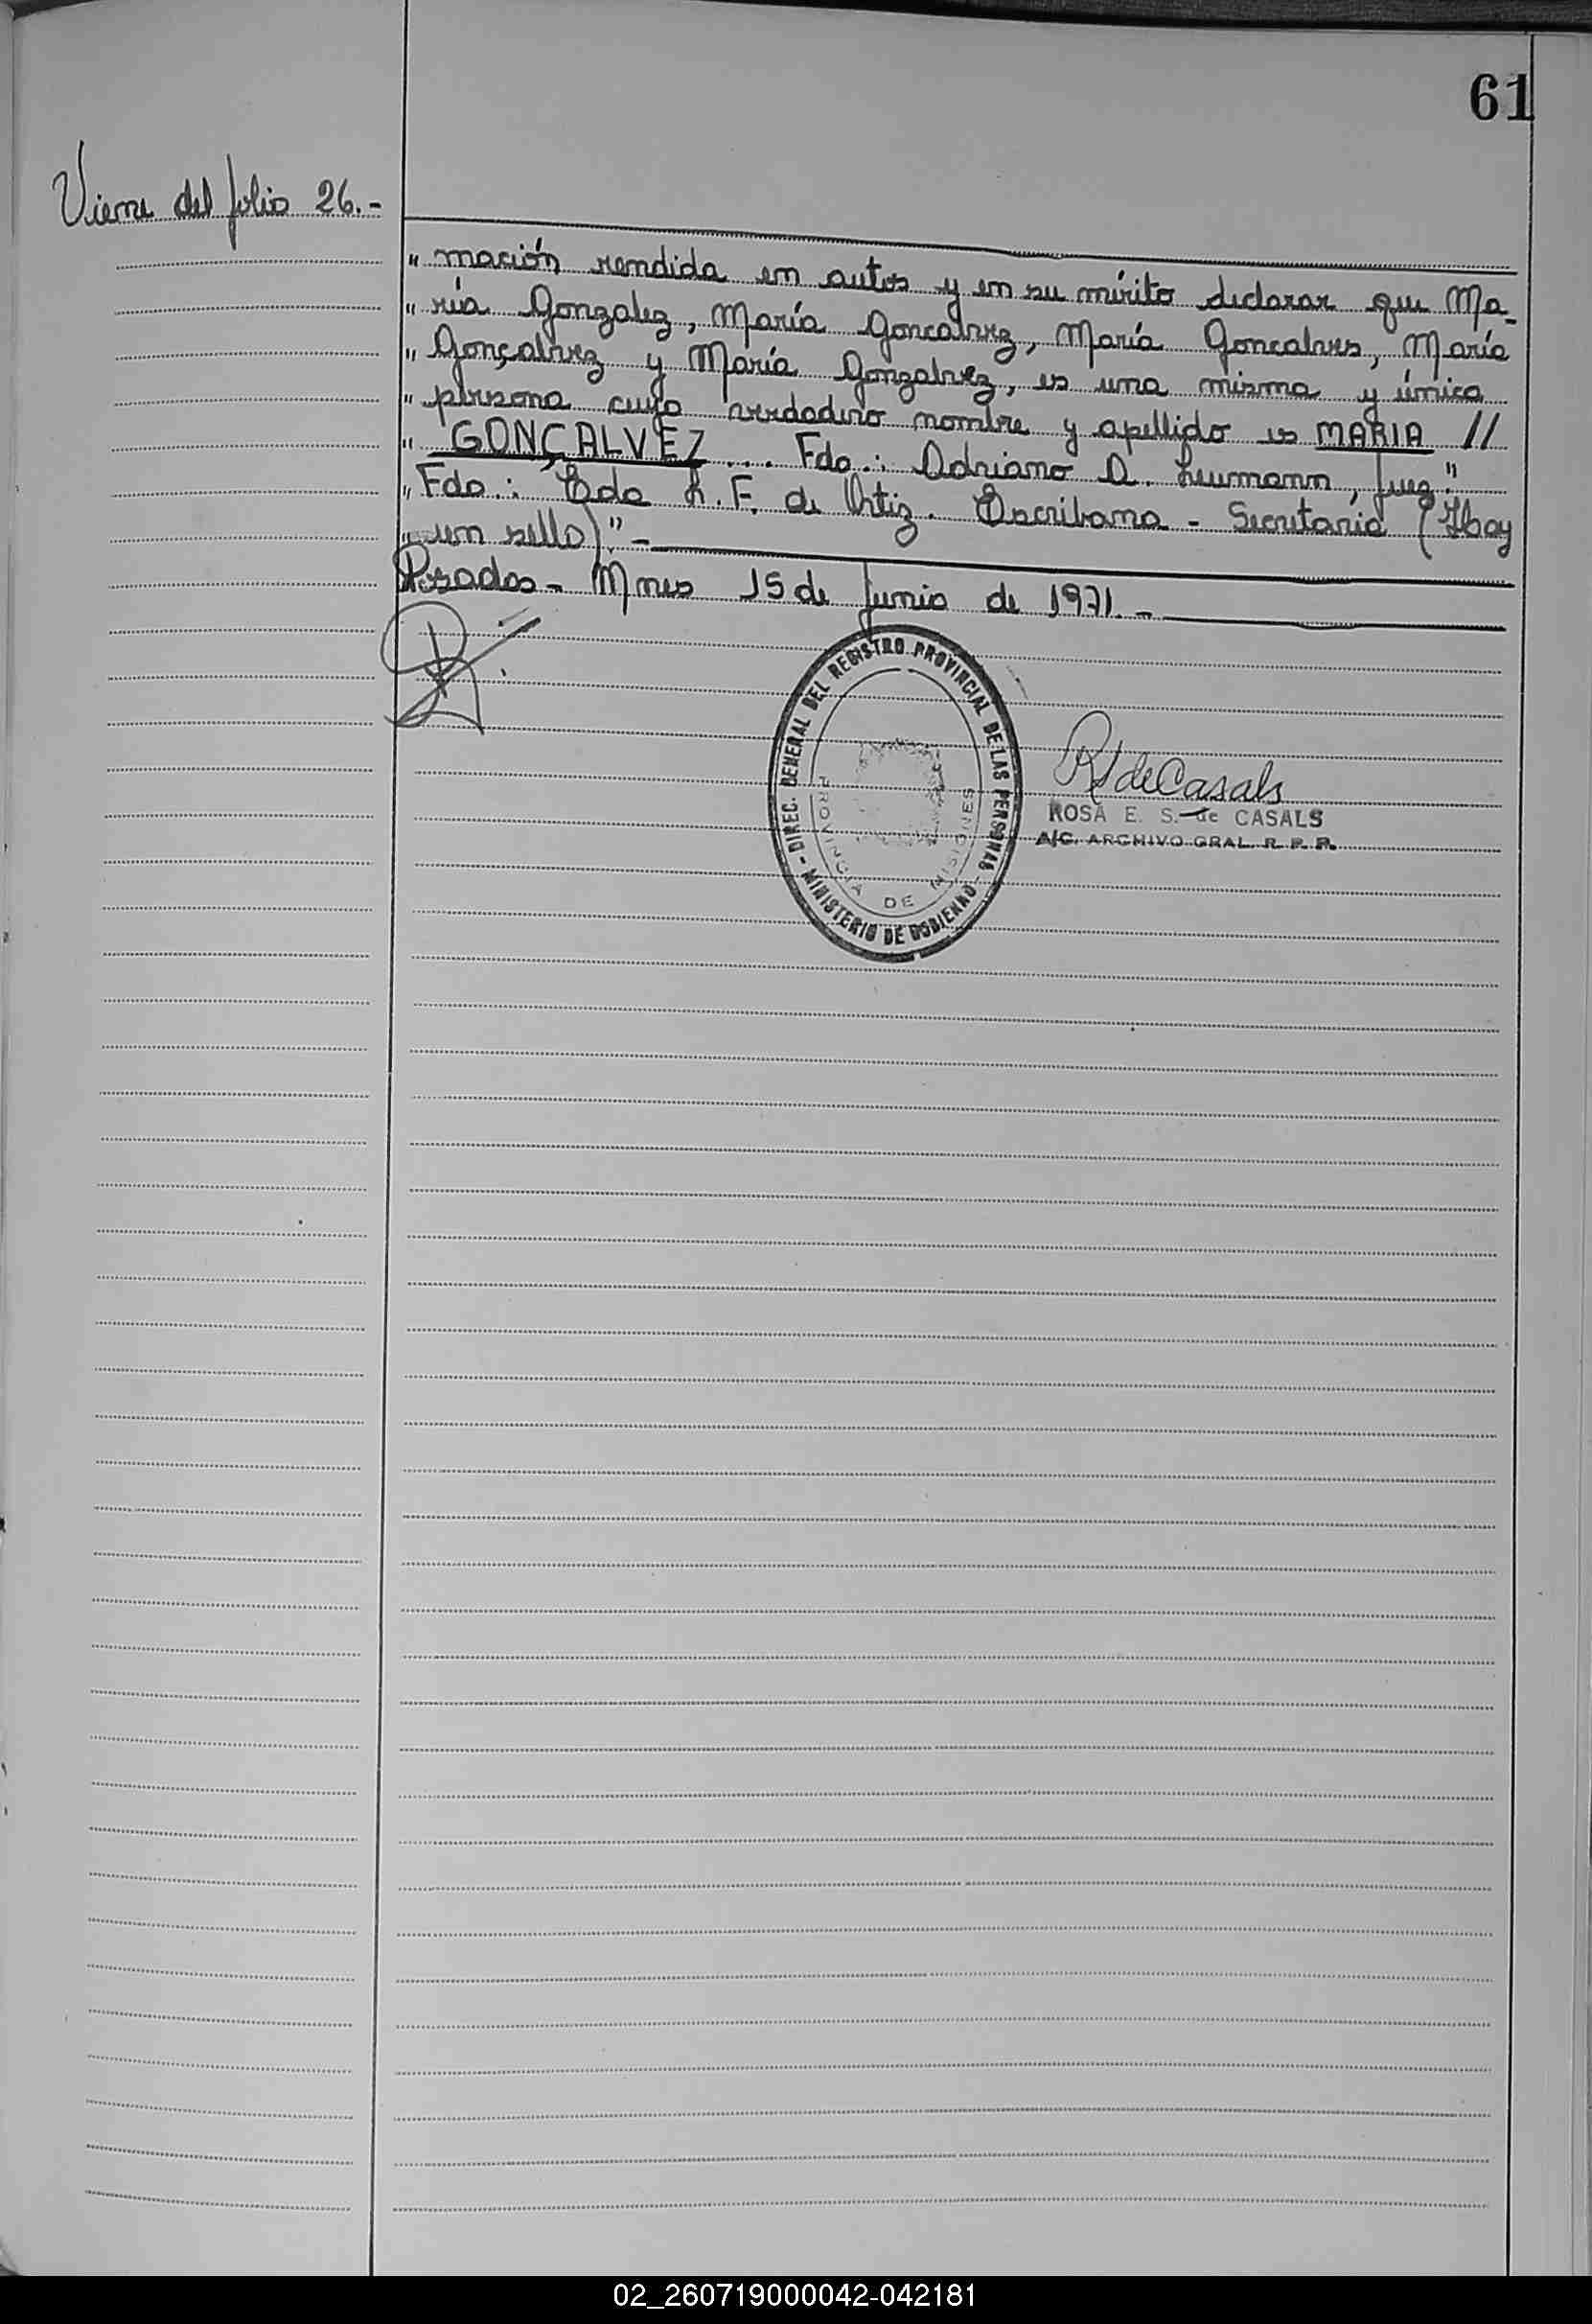 61
Viene del folio 26.-
" mación rendida en autos y en su mérito declarar que Ma-
" ría Gonzalez, María Goncalvez, María Goncalves, María
" Gonçalvez y María Gonzalvez, es una misma y única
" persona cuyo verdadero nombre y apellido es MARIA //
" GONÇALVEZ .... Fdo.: Adriano A. Leumann, Juez."
" Fdo.: Eda L. F. de Ortiz. Escribana - Secretaria (Hay
" un sello)."-
Posadas - Mnes 15 de Junio de 1971.-
DIREC. GENERAL DEL REGISTRO PROVINCIAL DE LAS PERSONAS - MINISTERIO DE GOBIERNO -
PROVINCIA DE MISIONES
R S de Casals
ROSA E. S. de CASALS
A/C. ARCHIVO GRAL. R. P. P.
02_260719000042-042181